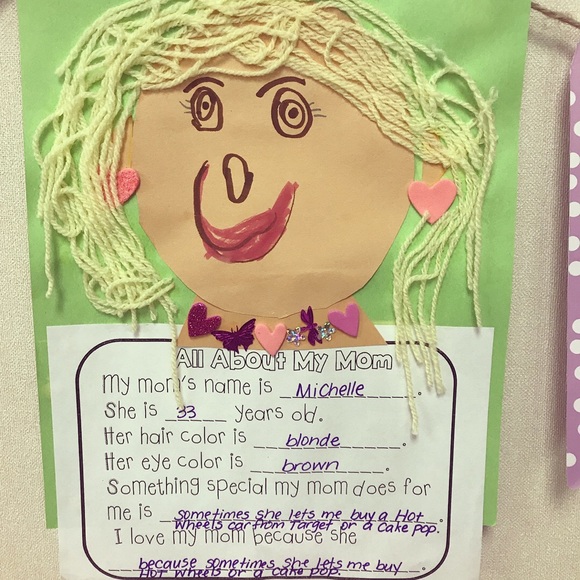 All About My Mom
My mom's name is Michelle.
She is 33 years old.
Her hair color is blonde.
Her eye color is brown.
Something special my mom does for
me is sometimes she lets me buy a Hot
Wheels car from Target or a cake pop.
I love my mom because she
because sometimes she lets me buy.
Hot Wheels or a cake pop.